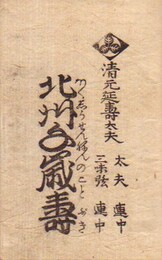 清元延壽太夫
太夫 連中
三味弦 連中
ほくしうせんねんのことぶき
北州千歳壽